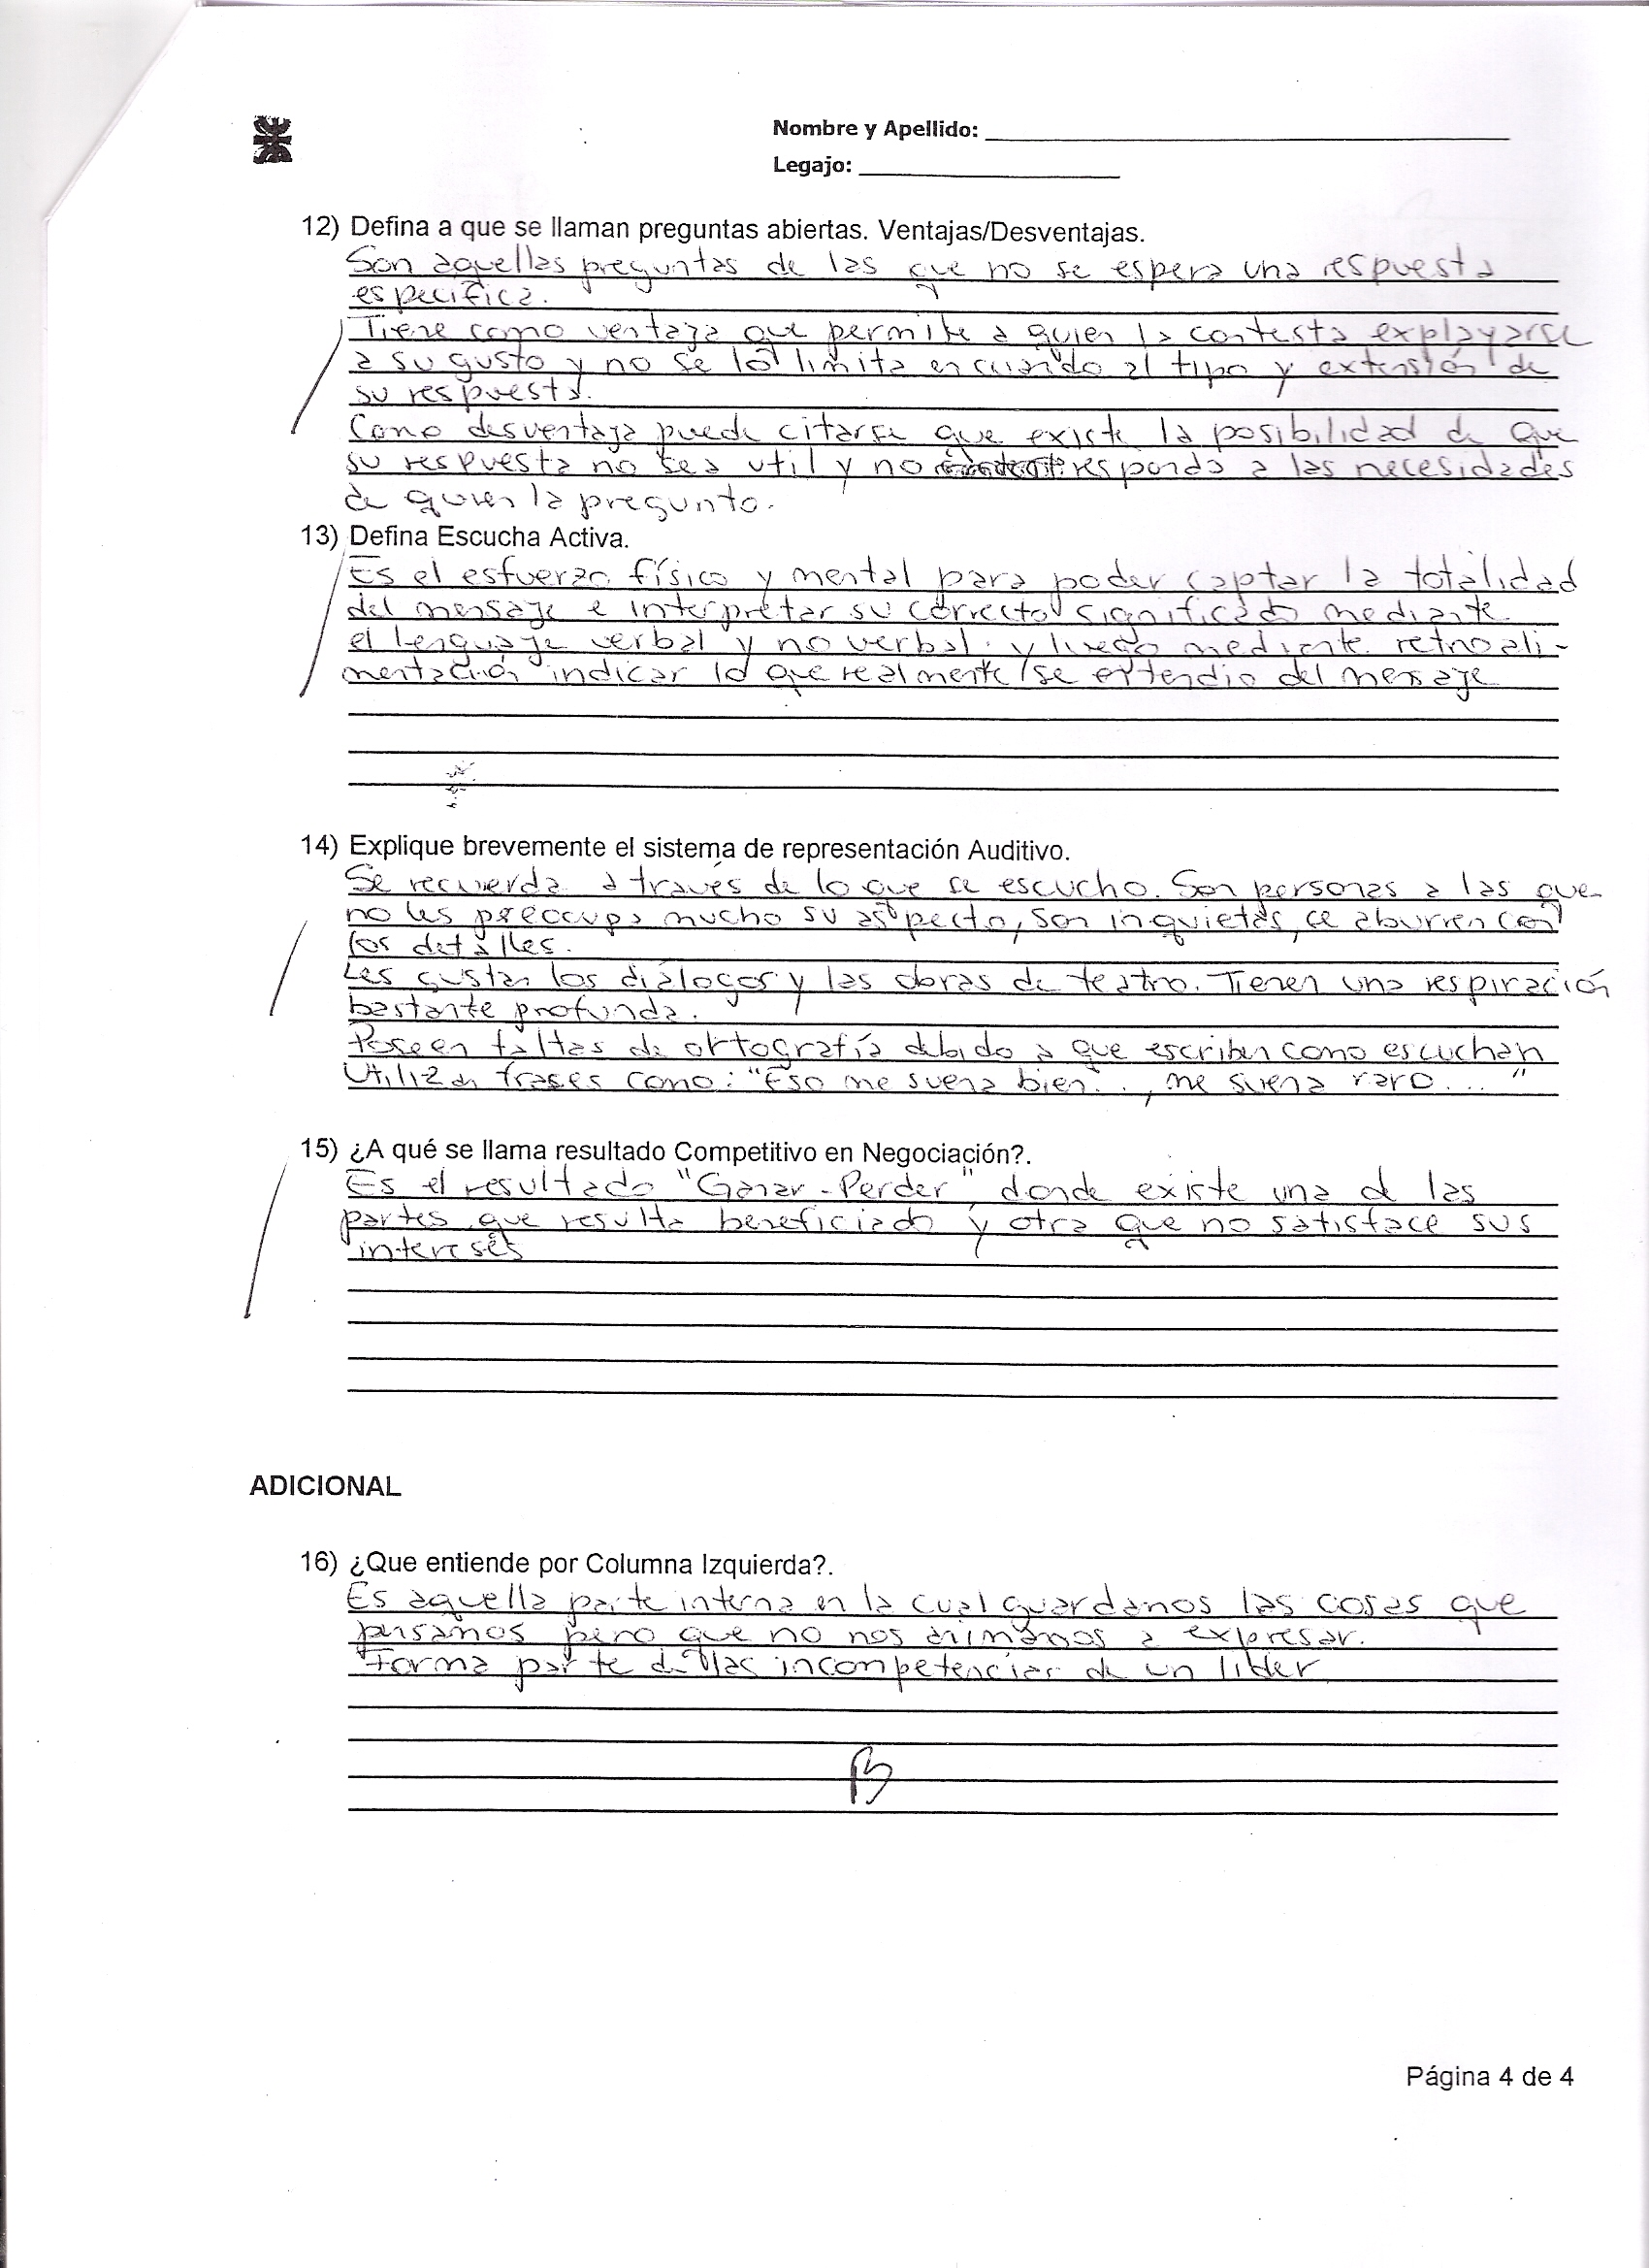 Nombre y Apellido:
Legajo:
12) Defina a que se llaman preguntas abiertas. Ventajas/Desventajas.
Son aquellas preguntas de las que no se espera una respuesta
especifica.
Tiene como ventaja que permite a quien la contesta explayarse
a su gusto y no se lo limita en cuando al tipo y extensión de
su respuesta.
Como desventaja puede citarse que existe la posibilidad de que
su respuesta no sea util y no responda a las necesidades
de quien la pregunto.
13) Defina Escucha Activa.
Es el esfuerzo físico y mental para poder captar la totalidad
del mensaje e interpretar su correcto significado mediante
el lenguaje verbal y no verbal. y luego mediante retroali-
mentación indicar lo que realmente se entendio del mensaje
14) Explique brevemente el sistema de representación Auditivo.
Se recuerda a través de lo que se escucho. Son personas a las que
no les preocupa mucho su aspecto, son inquietas, se aburren con
los detalles.
Les gustan los diálogos y las obras de teatro. Tienen una respiración
bastante profunda.
Poseen faltas de ortografía debido a que escriben como escuchan
Utilizan frases como: "Eso me suena bien..., me suena raro...."
15) ¿A qué se llama resultado Competitivo en Negociación?.
Es el resultado "Ganar - Perder", donde existe una d las
partes que resulta beneficiado y otra que no satisface sus
intereses
ADICIONAL
16) ¿Que entiende por Columna Izquierda?.
Es aquella parte interna en la cual guardamos las cosas que
pensamos pero que no nos animamos a expresar.
Forma parte de las incompetencias de un lider
B
Página 4 de 4